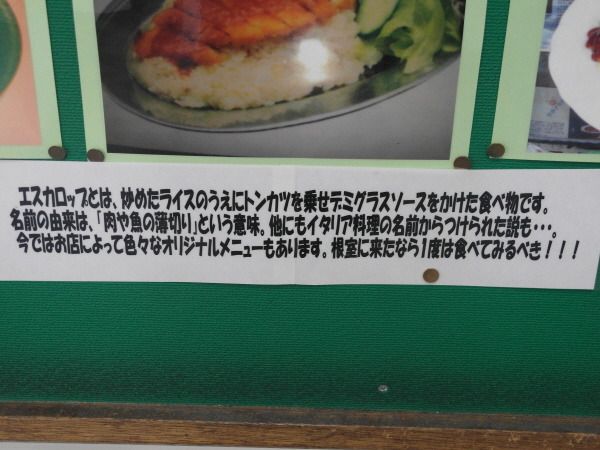 エスカロップとは、炒めたライスのうえにトンカツを乗せデミグラスソースをかけた食べ物です。
名前の由来は、「肉や魚の薄切り」という意味。他にもイタリア料理の名前からつけられた説も・・・。
今ではお店によって色々なオリジナルメニューもあります。根室に来たなら1度は食べてみるべき！！！